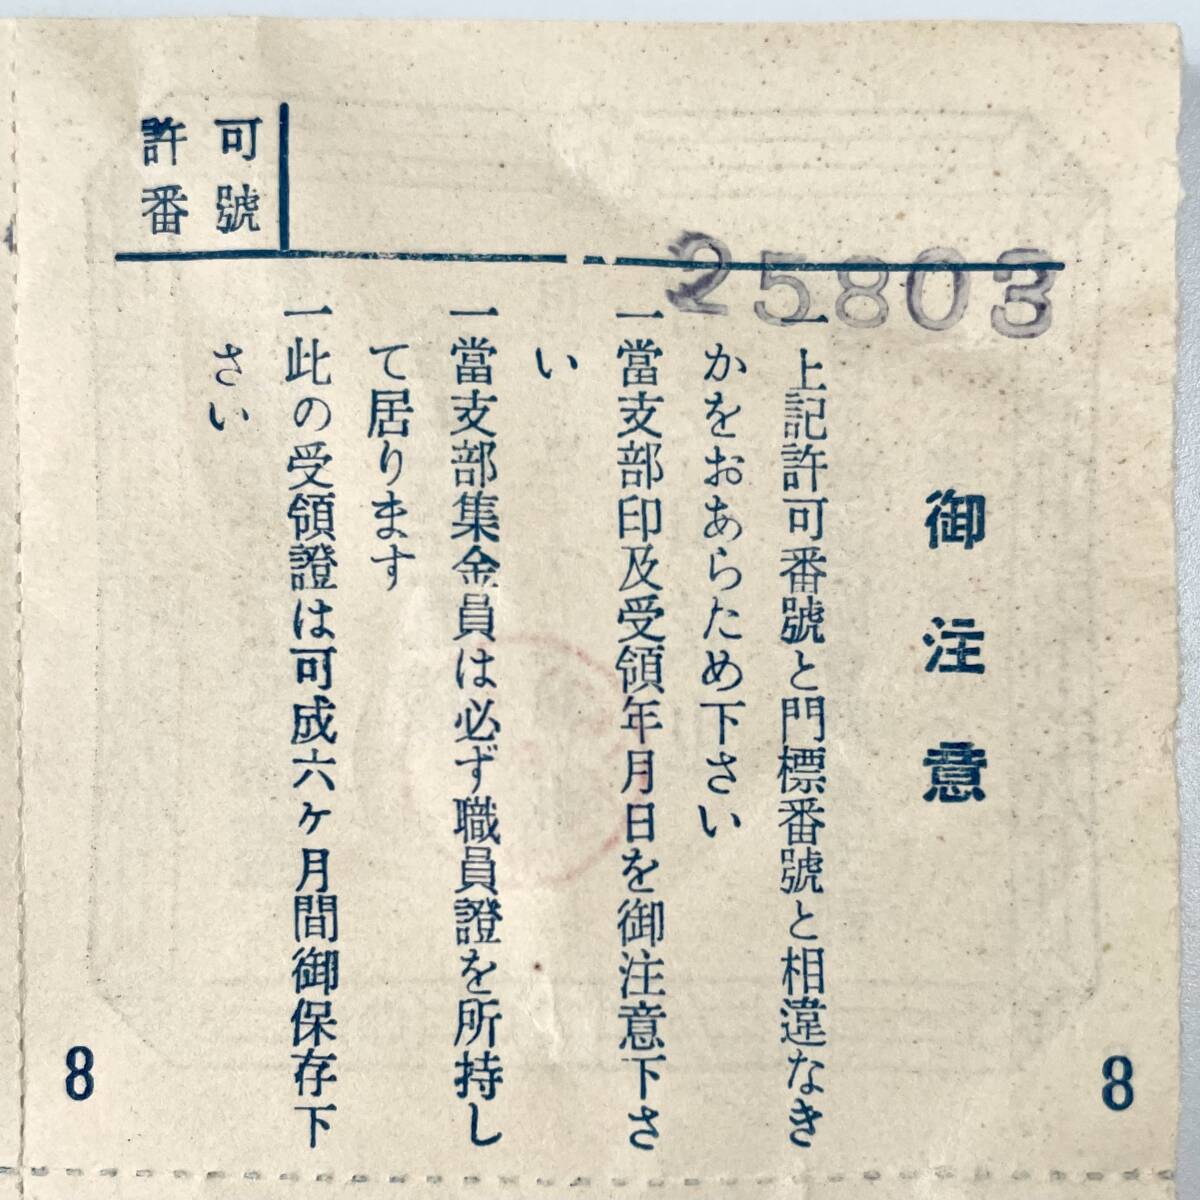 許可
番號
25803
御注意
一上記許可番號と門標番號と相違なき
かをおあらため下さい
一當支部印及受領年月日を御注意下さ
い
一當支部集金員は必ず職員證を所持し
て居ります
一此の受領證は可成六ヶ月間御保存下
さい
8
8